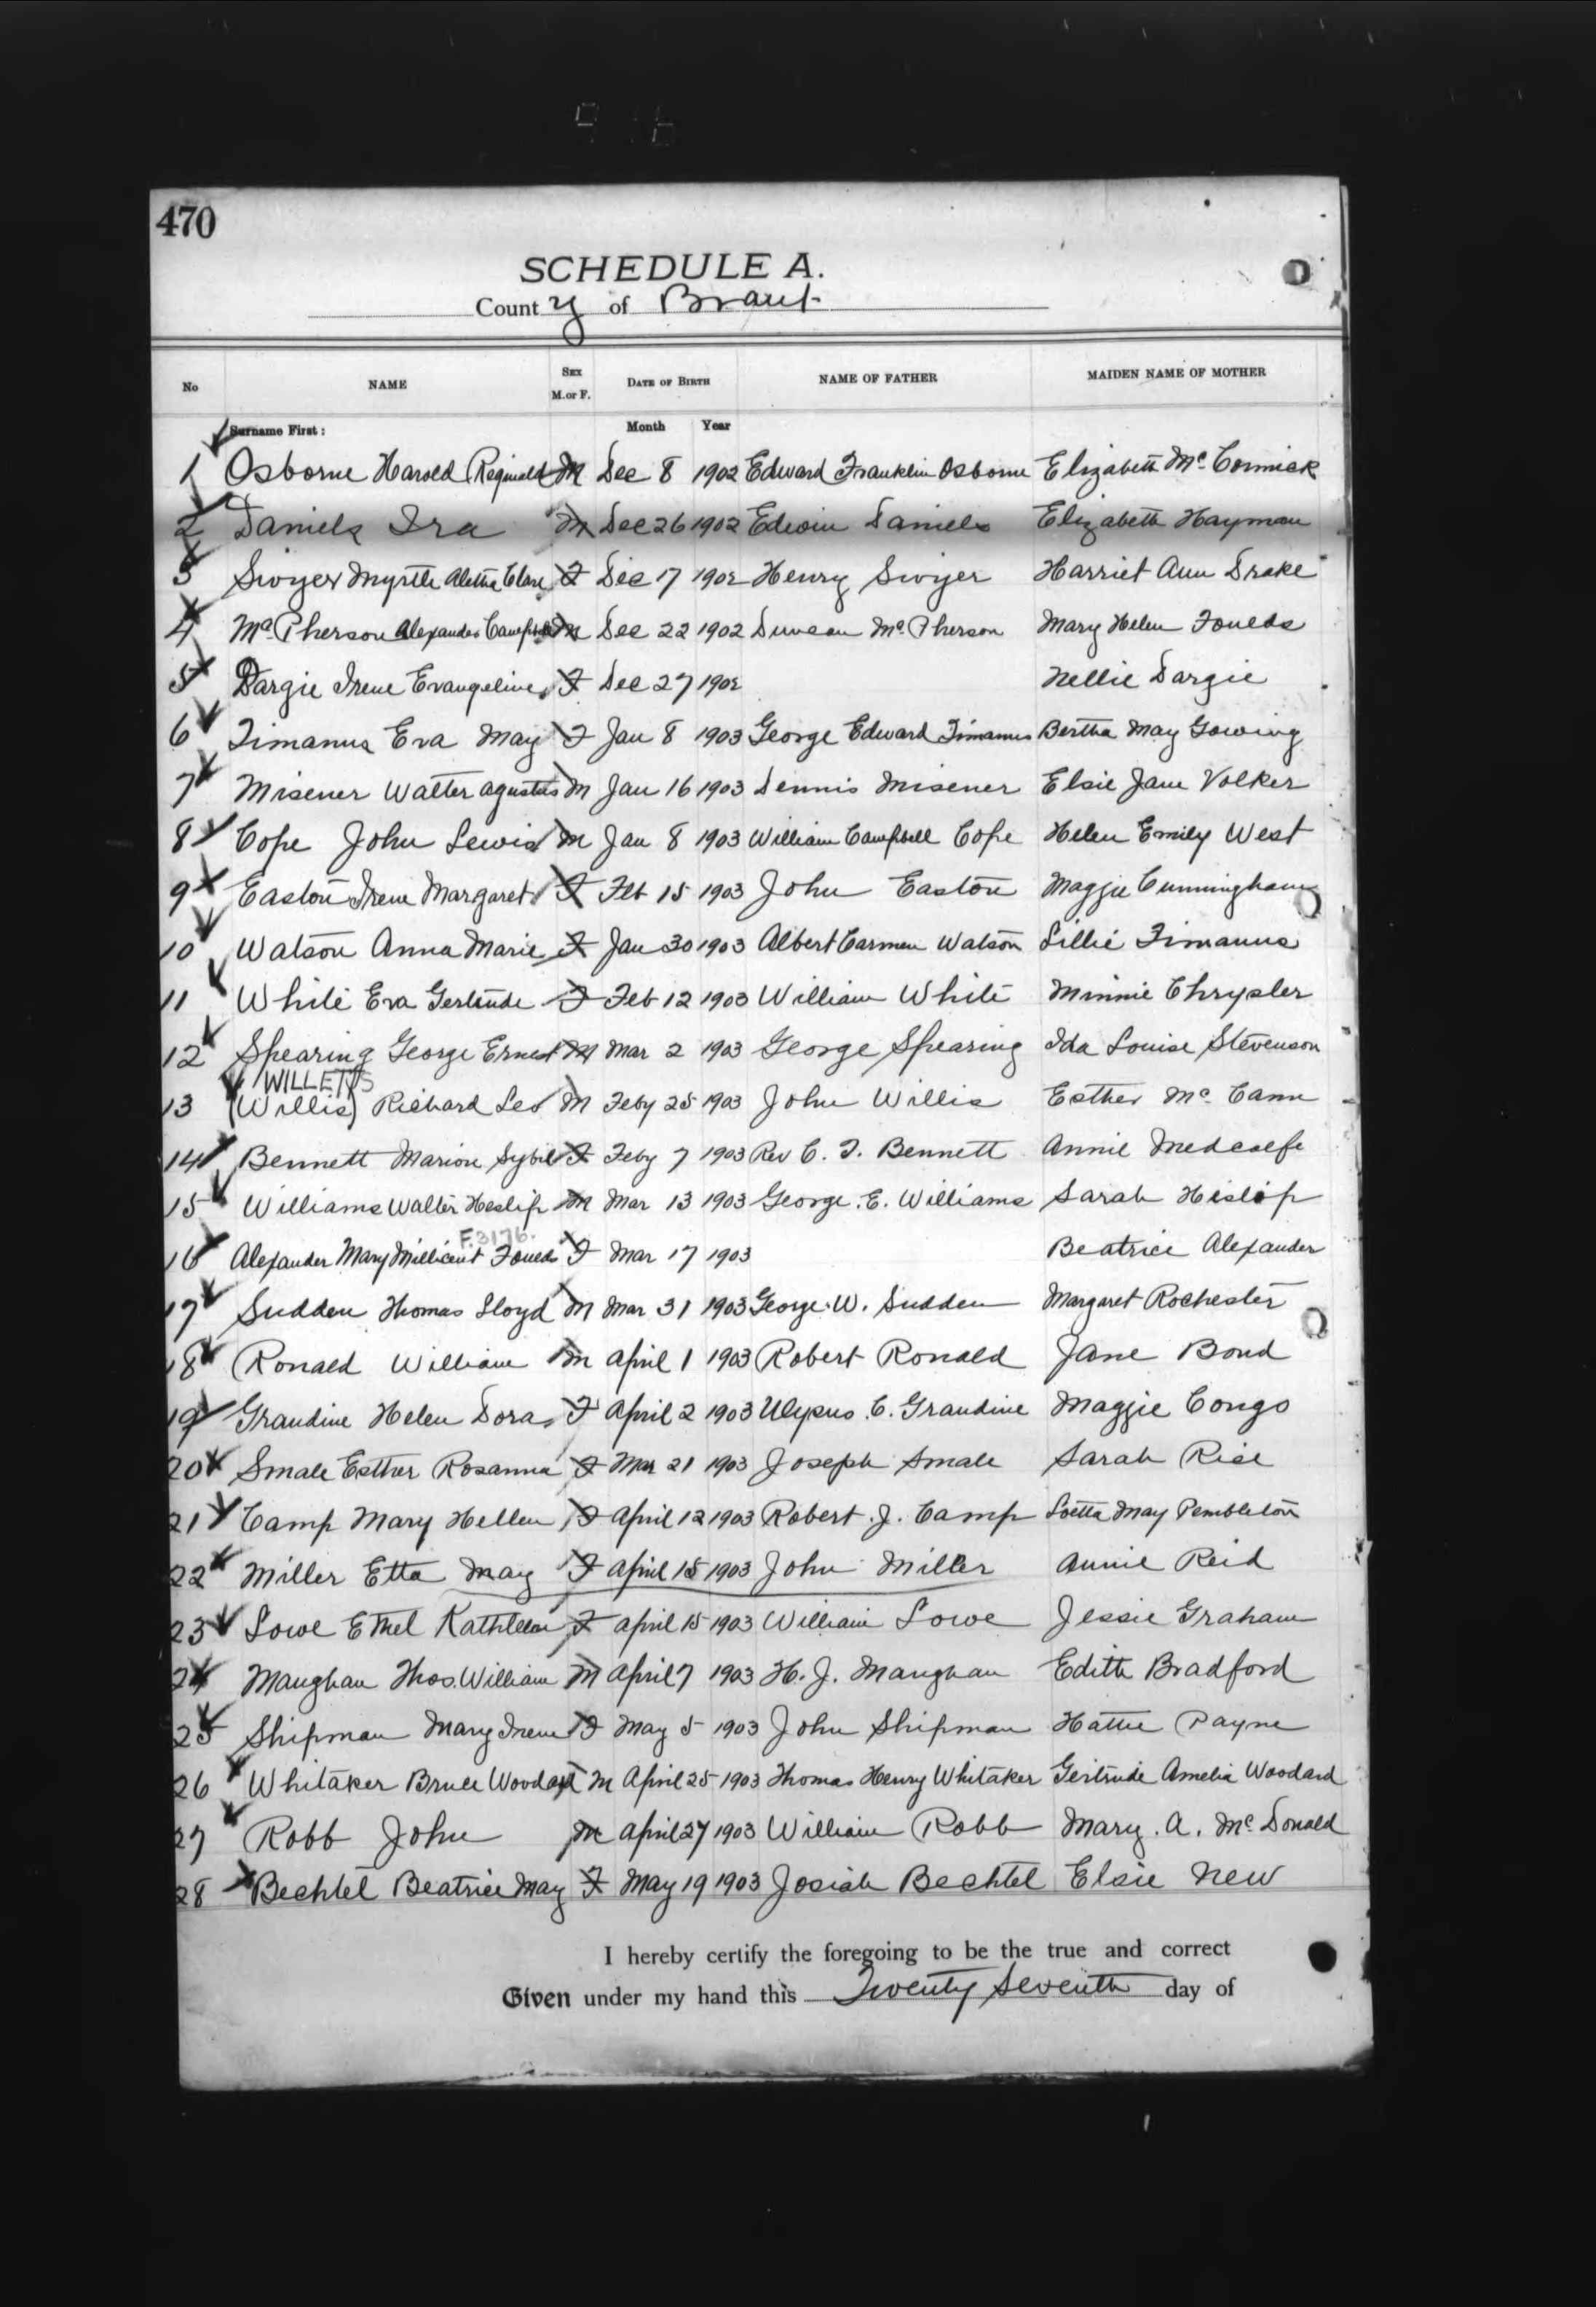 470
SCHEDULE A.
County of Brant
No NAME SEX M. or F. DATE OF BIRTH NAME OF FATHER MAIDEN NAME OF MOTHER
Surname First: Month Year
1 Osborne Harold Reginald M Dec 8 1902 Edward Franklin Osborne Elizabeth McCormick
2 Daniels Ira M Dec 26 1902 Edwin Daniels Elizabeth Hayman
3 Swyer Myrtle Aletha Clare F Dec 17 1902 Henry Swyer Harriet Ann Drake
4 McPherson Alexander Campbell M Dec 22 1902 Duncan McPherson Mary Helen Foulds
5 Dargie Irene Evangeline F Dec 27 1902 Nellie Dargie
6 Timanus Eva May F Jan 8 1903 George Edward Timanus Bertha May Gowing
7 Misener Walter Agustus M Jan 16 1903 Dennis Misener Elsie Jane Volker
8 Cope John Lewis M Jan 8 1903 William Campbell Cope Helen Emily West
9 Easton Irene Margaret F Feb 15 1903 John Easton Maggie Cunningham
10 Watson Anna Marie F Jan 30 1903 Albert Carmen Watson Lillie Timanus
11 White Eva Gertrude F Feb 12 1903 William White Minnie Chrysler
12 Spearing George Ernest M Mar 2 1903 George Spearing Ida Louise Stevenson
WILLETTS
13 (Willis) Richard Leo M Feby 25 1903 John Willis Esther McCann
14 Bennett Marion Sybil F Feby 7 1903 Rev C. T. Bennett Annie Medcalfe
15 Williams Walter Heslip M Mar 13 1903 George. E. Williams Sarah Hislop
F.3176.
16 Alexander Mary Millicent Foulds F Mar 17 1903 Beatrice Alexander
17 Sudden Thomas Lloyd M Mar 31 1903 George. W. Sudden Margaret Rochester
18 Ronald William M April 1 1903 Robert Ronald Jane Bond
19 Grandine Helen Dora F April 2 1903 C. Grandine Maggie Congo
20 Smale Esther Rosanna F Mar 21 1903 Joseph Smale Sarah Rice
21 Camp Mary Hellen F April 12 1903 Robert. J. Camp Loetta May Pembleton
22 Miller Etta May F April 15 1903 John Miller Annie Reid
23 Lowe Ethel Kathleen F April 15 1903 William Lowe Jessie Graham
24 Maughan Thos. William M April 7 1903 H. J. Maughan Edith Bradford
25 Shipman Mary Irene F May 5 1903 John Shipman Hattie Payne
26 Whitaker Bruce Woodard M April 25 1903 Thomas Henry Whitaker Gertrude Amelia Woodard
27 Robb John M April 27 1903 William Robb Mary. A. McDonald
28 Bechtel Beatrice May F May 19 1903 Josiah Bechtel Elsie New
I hereby certify the foregoing to be the true and correct
Given under my hand this Twenty Seventh day of